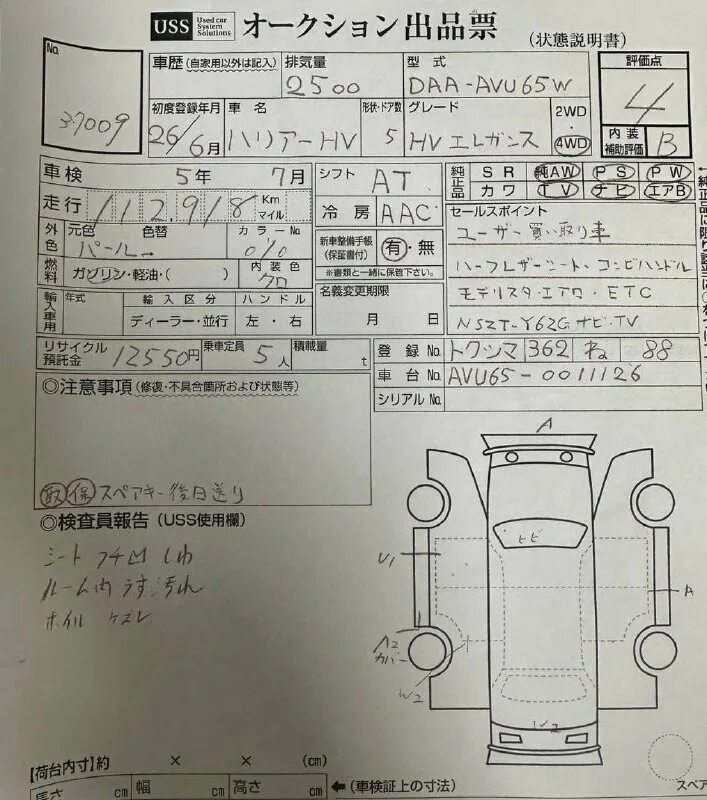 USS Used car System Solutions オークション出品票 (状態説明書)
No. 37009
車歴 (自家用以外は記入)
排気量 2500
型式 DAA-AVU65W
評価点 4
初度登録年月 26年 6月
車名 ハリアーHV
形状・ドア数 5
グレード HV エレガンス
2WD・4WD
内装補助評価 B
車検 5年 7月
シフト AT
純正品 SR 純AW PS PW
カワ TV ナビ エアB
走行 112,918 Km マイル
冷房 AAC
セールスポイント
ユーザー買い取り車
ハーフレザーシート・コンビハンドル
モデリスタ・エアロ・ETC
NSZT-Y62G ナビ・TV
外色 元色 パール 色替 → カラーNo. 070
新車整備手帳(保証書付) 有・無
※書類と一緒に保管下さい。
燃料 ガソリン・軽油・( )
内装色 クロ
名義変更期限 月 日
輸入車用 年式 輸入区分 ハンドル
ディーラー・並行 左・右
リサイクル預託金 12550円
乗車定員 5人
積載量 t
登録No. トクシマ 362 ね 88
車台No. AVU65-0011126
シリアルNo.
◎注意事項(修復・不具合箇所および状態等)
取 保 スペアキー後日送り
◎検査員報告 (USS使用欄)
シート フチ凹 しわ
ルーム内 うす汚れ
ホイル ケズレ
A
ヒビ
U1
A
A2
カバー
W2
W2
【荷台内寸】約 × × (cm)
長さ cm 幅 cm 高さ cm ←(車検証上の寸法)
スペア